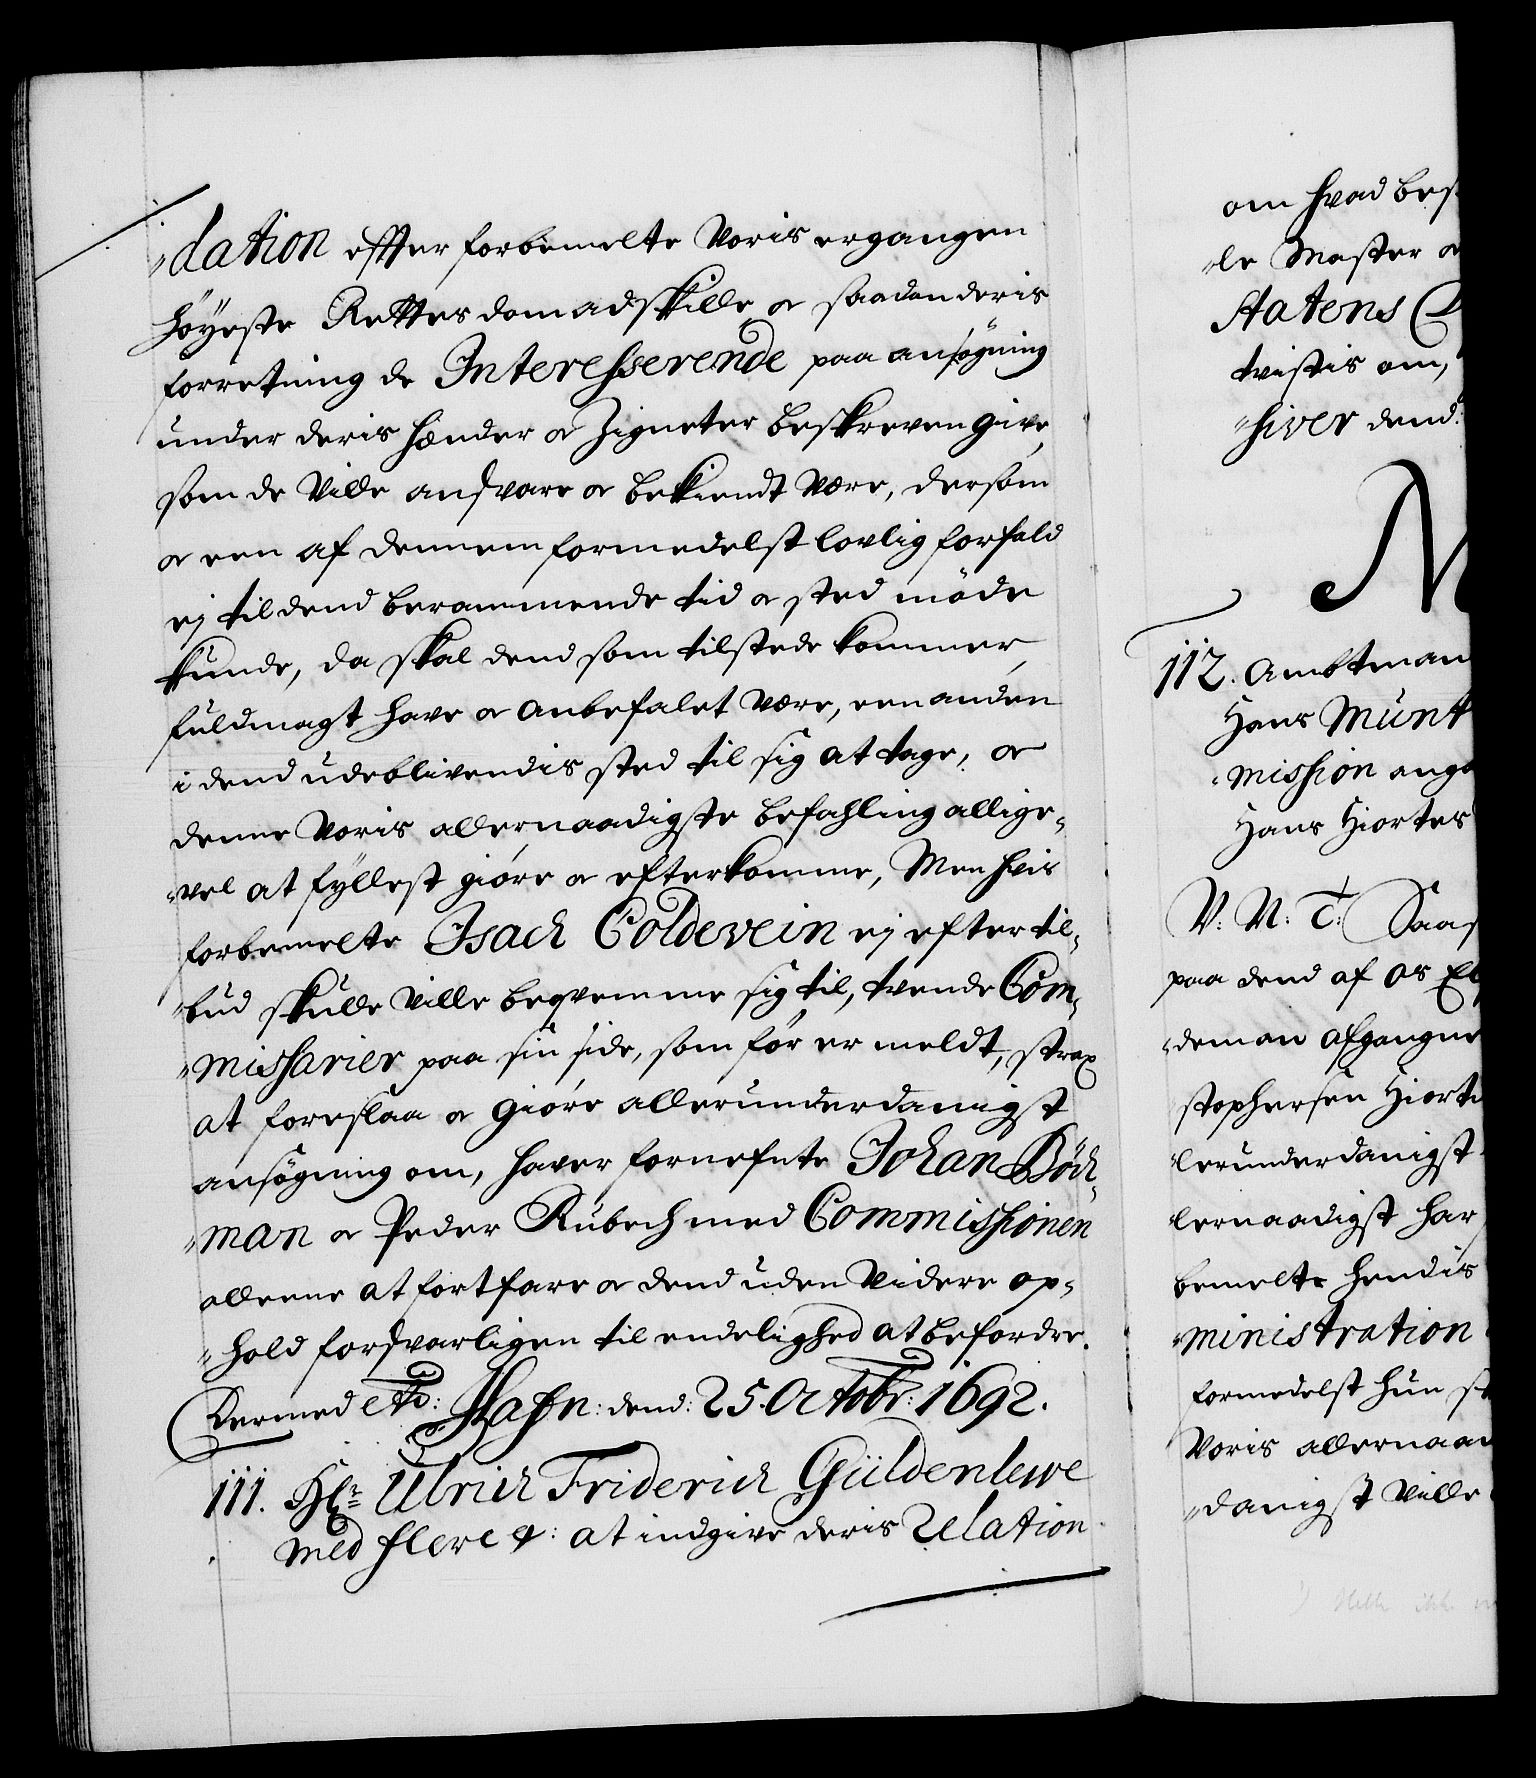 dation effter forbemelte Voris ergangen
höyeste Rettes dom adskille og saadan deris
forretning de Interesserende paa ansøgning
under deris Hænder og Zigneter beskreven give,
som de Ville andsvare og bekiendt Være, dersom
og een af dennem formedelst lovlig forfald
ej til dend berammende tid og sted møde
kunde, da skal dend som tilstede kommer,
fuldmagt have og anbefalet Være, een anden
i dend udeblivendis sted til sig at tage, og
denne Voris allernaadigste befahling allige-
vel at fyllest giøre og efterkomme, Men hvis
forbemelte Isach Coldevein ej efter til-
bud skulle Ville beqvemme sig til, tvende Com-
missarier paa sin side, som før er meldt, strax
at foreslaa og giøre allerunderdanigst
ansøgning om, haver fornefnte Johan Böch-
man og Peder Rübech med Commissionen
alleene at fortfare og dend uden Videre op-
hold forsvarligen til endelighed at befordre.
Dermed etc: Hafn: dend: 25. Octobr: 1692.
111. Hr: Ulrich Friderich Güldenlewe
med flere &: at indgive deris Relation
om hvad bes
le Master og
statens C
tvistis om,
hiver dend:
M
112. Ambtman
Hans Münt
mission anga
Hans Hiortes
V: N: T: Saas
paa dend af os El
deman afgangne
stophersen Hiort
lerunderdanigst
lernaadigst har
bemelte hendis
ministration
formedelst hun st
Voris allernaa
danigst Ville